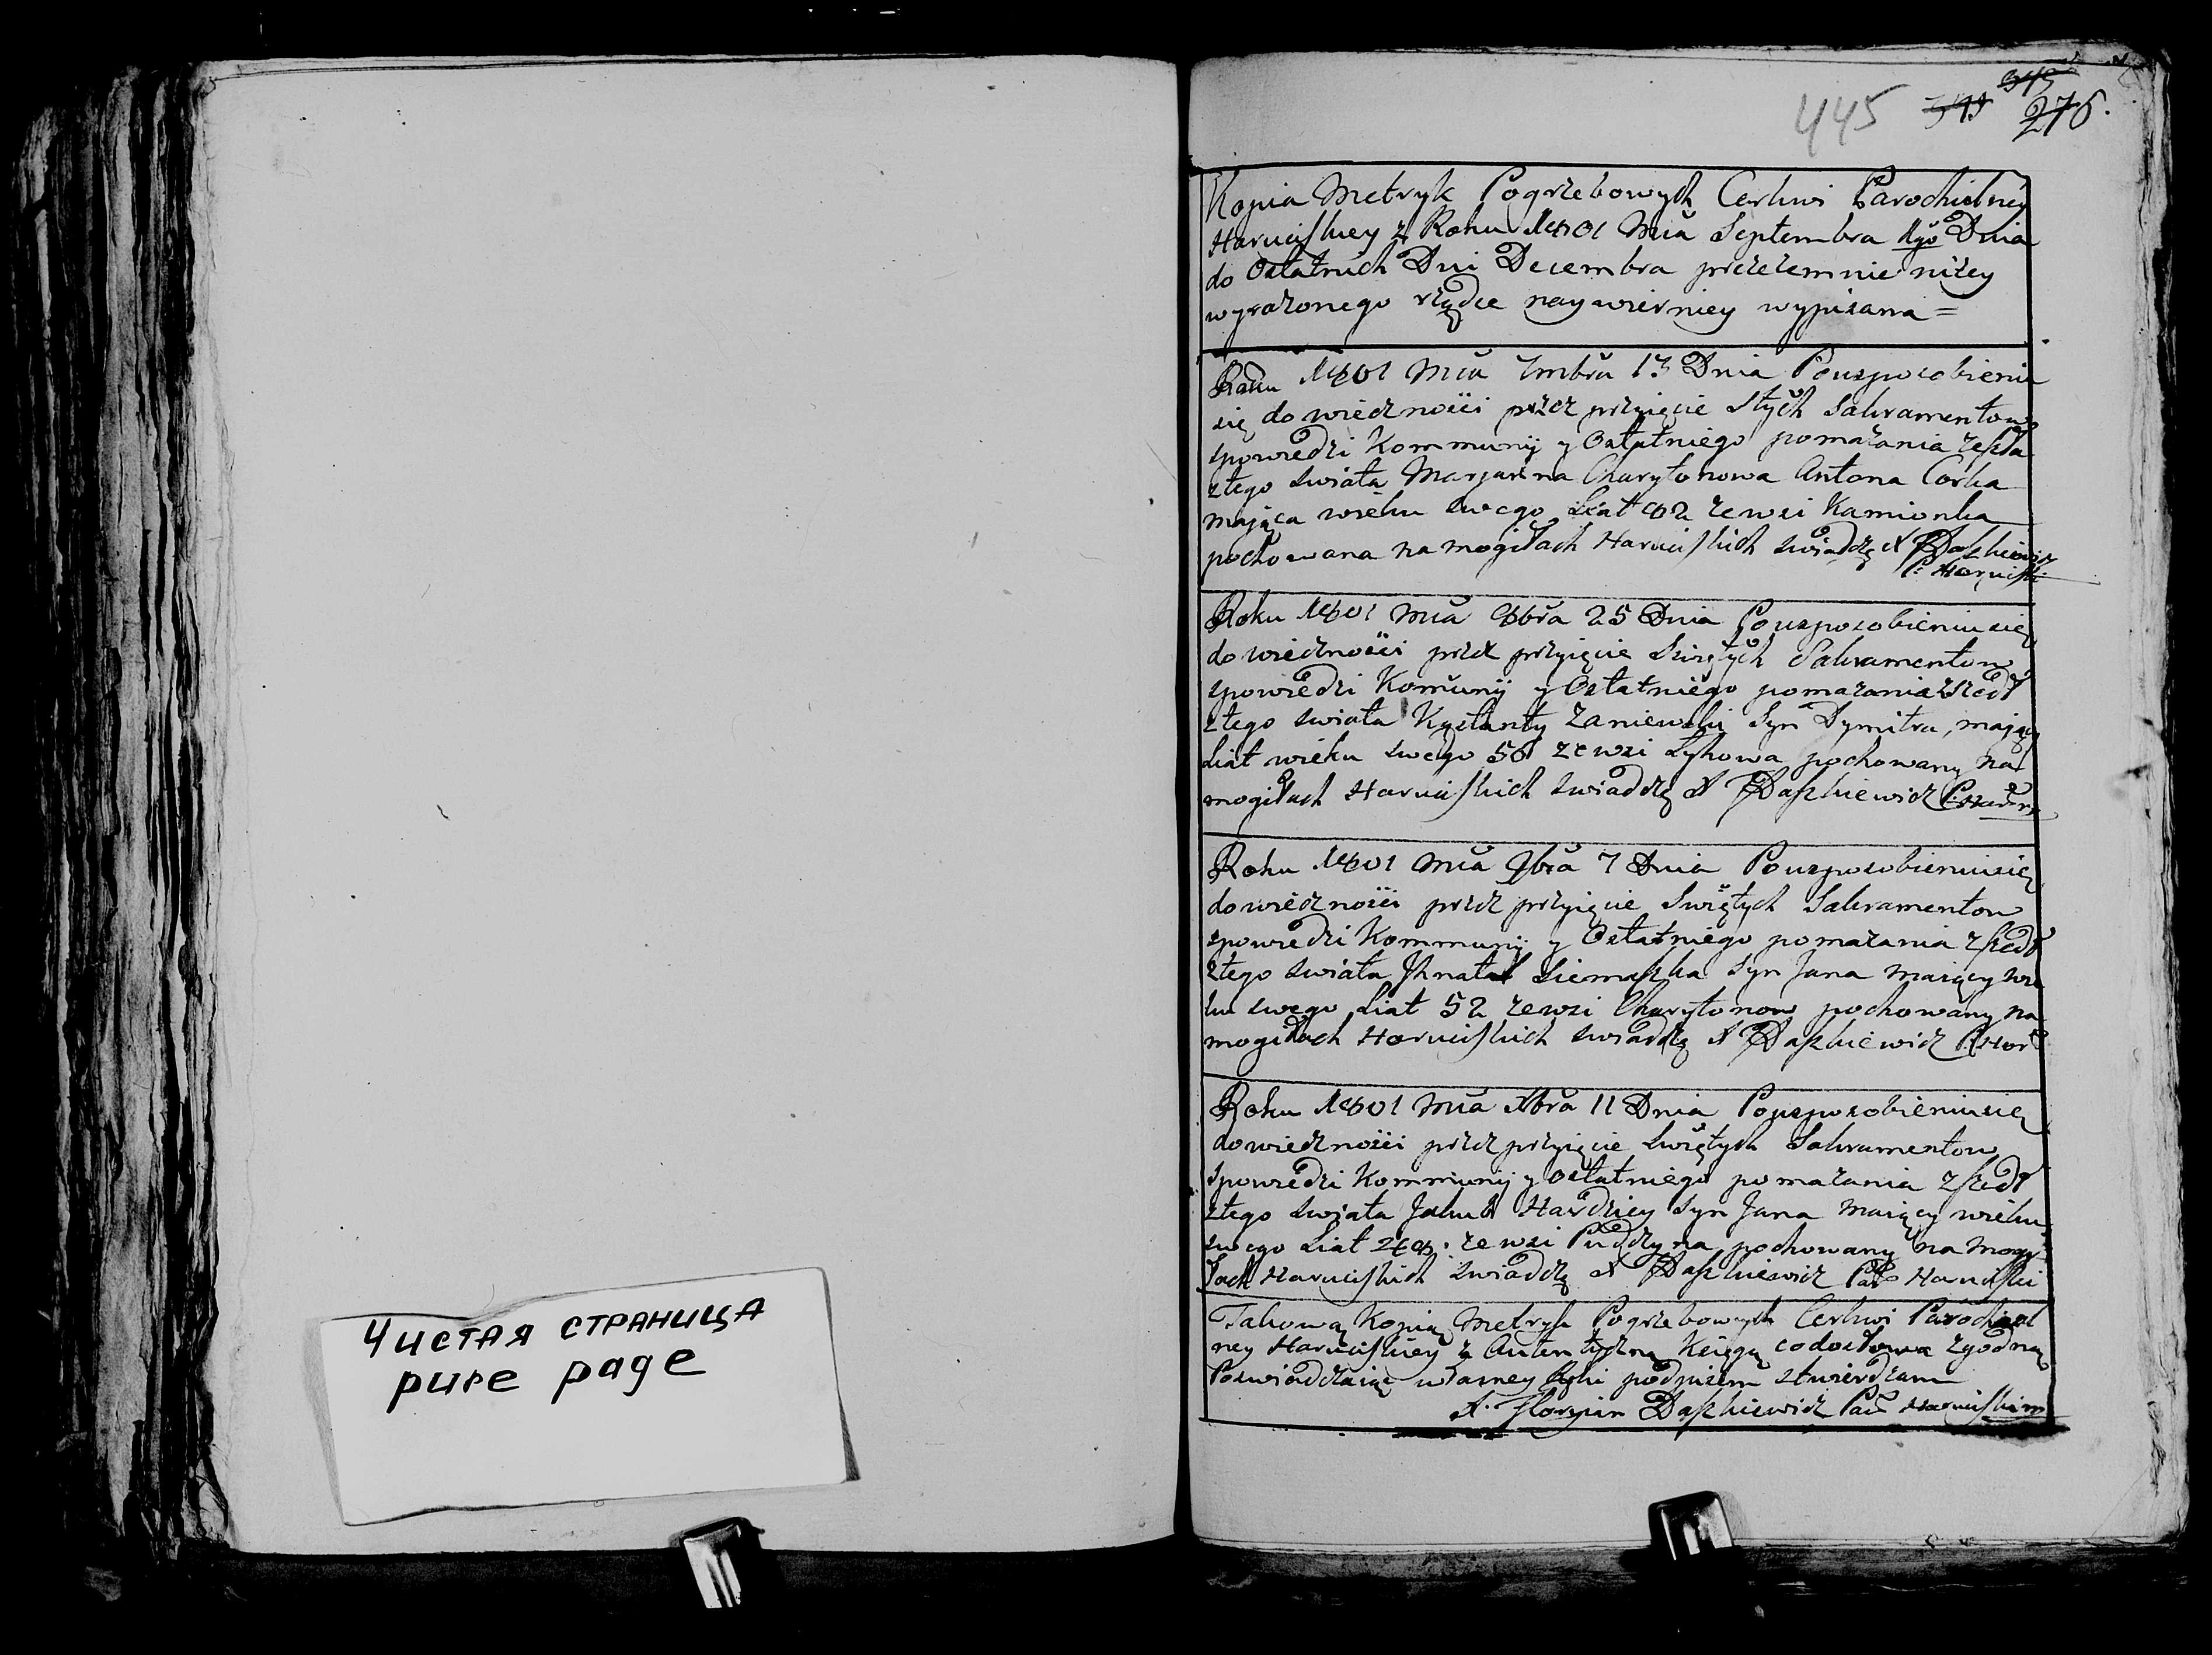 Чистая страница
pure page
445 345 345 276.
Kopia Metryk Pogrzebowych Cerkwi Parochialney
Haruciskiey z Roku 1801 Mca Septembra 1go Dnia
do Ostatnich Dni Decembra przezemnie niżey
wyrażonego rządce naywierniey wypisana =
Roku 1801 Mca 7mbra 13 Dnia Pousposobieniu
się do wiecznosci przez przyięcie Stych Sakramentow
spowiedzi Kommunij y Ostatniego pomazania zeszła
ztego swiata Marjanna Charytonowa Antona Corka
mająca wieku swego Liat 82 zewsi Kamionka
pochowana na mogiłach Haruciskich swiadczę X Daszkiewicz
P: Haruciski
Roku 1801 Mca 8bra 25 Dnia Pousposobieniu się
do wiecznosci przez przyięcie Swiętych Sakramentow
spowiedzi Komunij y Ostatniego pomazania zszedł
ztego swiata Zaniewski Syn Dymitra, mający
Liat wieku swego 56 zewsi Łykowa pochowany na
mogiłach Haruciskich swiadczę X Daszkiewicz P:
Roku 1801 Mca 9bra 7 Dnia Pousposobieniu się
do wiecznosci przez przyięcie Swiętych Sakramentow
spowiedzi Kommunij y Ostatniego pomazania zszedł
ztego swiata Jhnata Siemaszka Syn Jana maiący wie
ku swego Liat 52 zewsi Charytonow pochowany na
mogiłach Haruciskich swiadczę X Daszkiewicz P Har
Roku 1801 Mca Xbra 11 Dnia Pousposobieniu się
do wiecznosci przez przyięcie Swiętych Sakramentow
spowiedzi Kommunij y Ostatniego pomazania zszedł
ztego swiata Jakub Hardziey Syn Jana maiący wieku
swego Liat 48. zewsi Puddyna pochowany na mogi
łach Haruciskich swiadczę X Daszkiewicz Par Haruciski
Takową Kopią Metryk Pogrzebowych Cerkwi Parochial
ney Haruciskiey z Autentyczną Księgą codosłowa zgodną
Poswiadczaiąc własney ręki podpisem stwierdzam
X. Floryan Daszkiewicz Par Haruciski